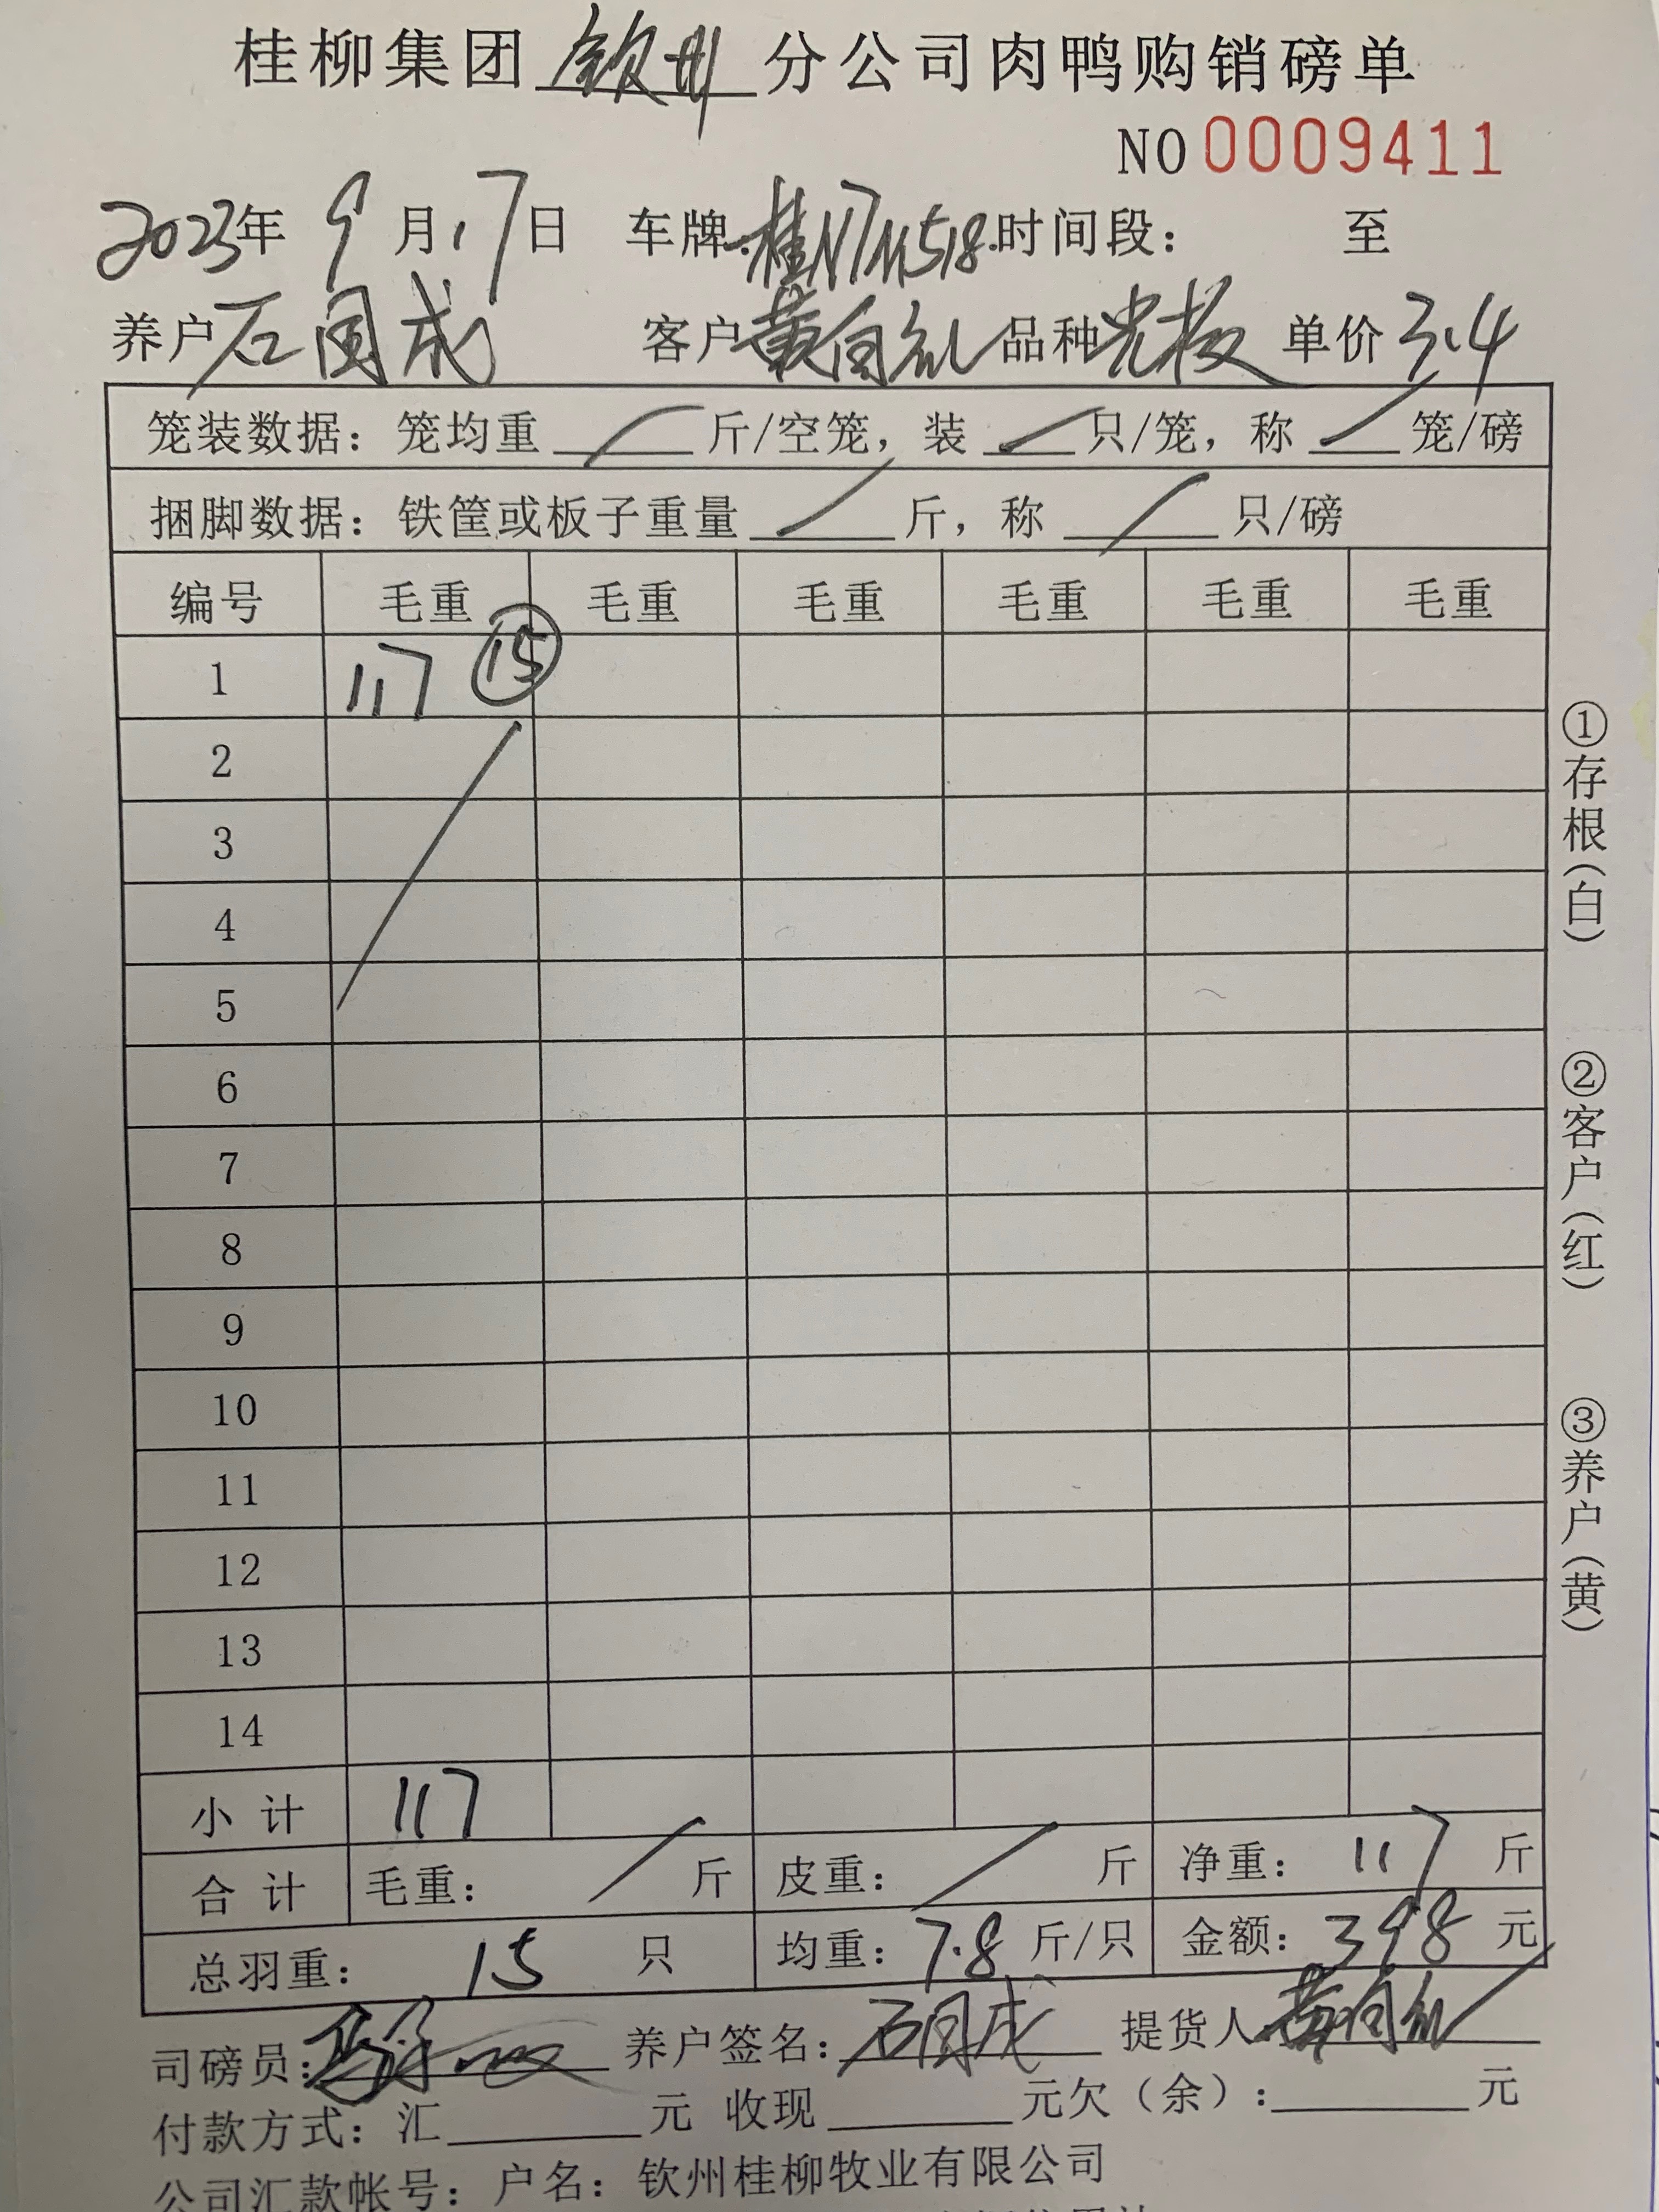 桂柳集团钦州分公司肉鸭购销磅单
NO 0009411
2023年 9月17日 车牌:桂N7M518 时间段: 至
养户 石国成 客户 黄自礼 品种 光板 单价 3.4
笼装数据: 笼均重 / 斤/空笼, 装 / 只/笼, 称 / 笼/磅
捆脚数据: 铁筐或板子重量 / 斤, 称 / 只/磅
编号 毛重 毛重 毛重 毛重 毛重 毛重
1 117 ⑮
2
3
4
5
6
7
8
9
10
11
12
13
14
小计 117
合计 毛重: / 斤 皮重: / 斤 净重: 117 斤
总羽重: 15 只 均重: 7.8 斤/只 金额: 398 元
司磅员: 养户签名: 石国成 提货人 黄自礼
付款方式: 汇 元 收现 元欠(余): 元
公司汇款帐号: 户名: 钦州桂柳牧业有限公司
①存根(白)
②客户(红)
③养户(黄)